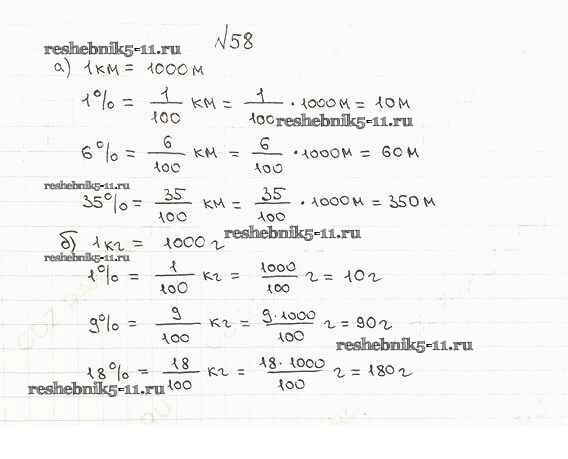 №58
reshebnik5-11.ru
а) 1 км = 1000 м
1% = 1/100 км = 1/100 · 1000 м = 10 м
reshebnik5-11.ru
6% = 6/100 км = 6/100 · 1000 м = 60 м
reshebnik5-11.ru
35% = 35/100 км = 35/100 · 1000 м = 350 м
reshebnik5-11.ru
б) 1 кг = 1000 г
reshebnik5-11.ru
1% = 1/100 кг = 1000/100 г = 10 г
9% = 9/100 кг = 9·1000/100 г = 90 г
reshebnik5-11.ru
18% = 18/100 кг = 18·1000/100 г = 180 г
reshebnik5-11.ru